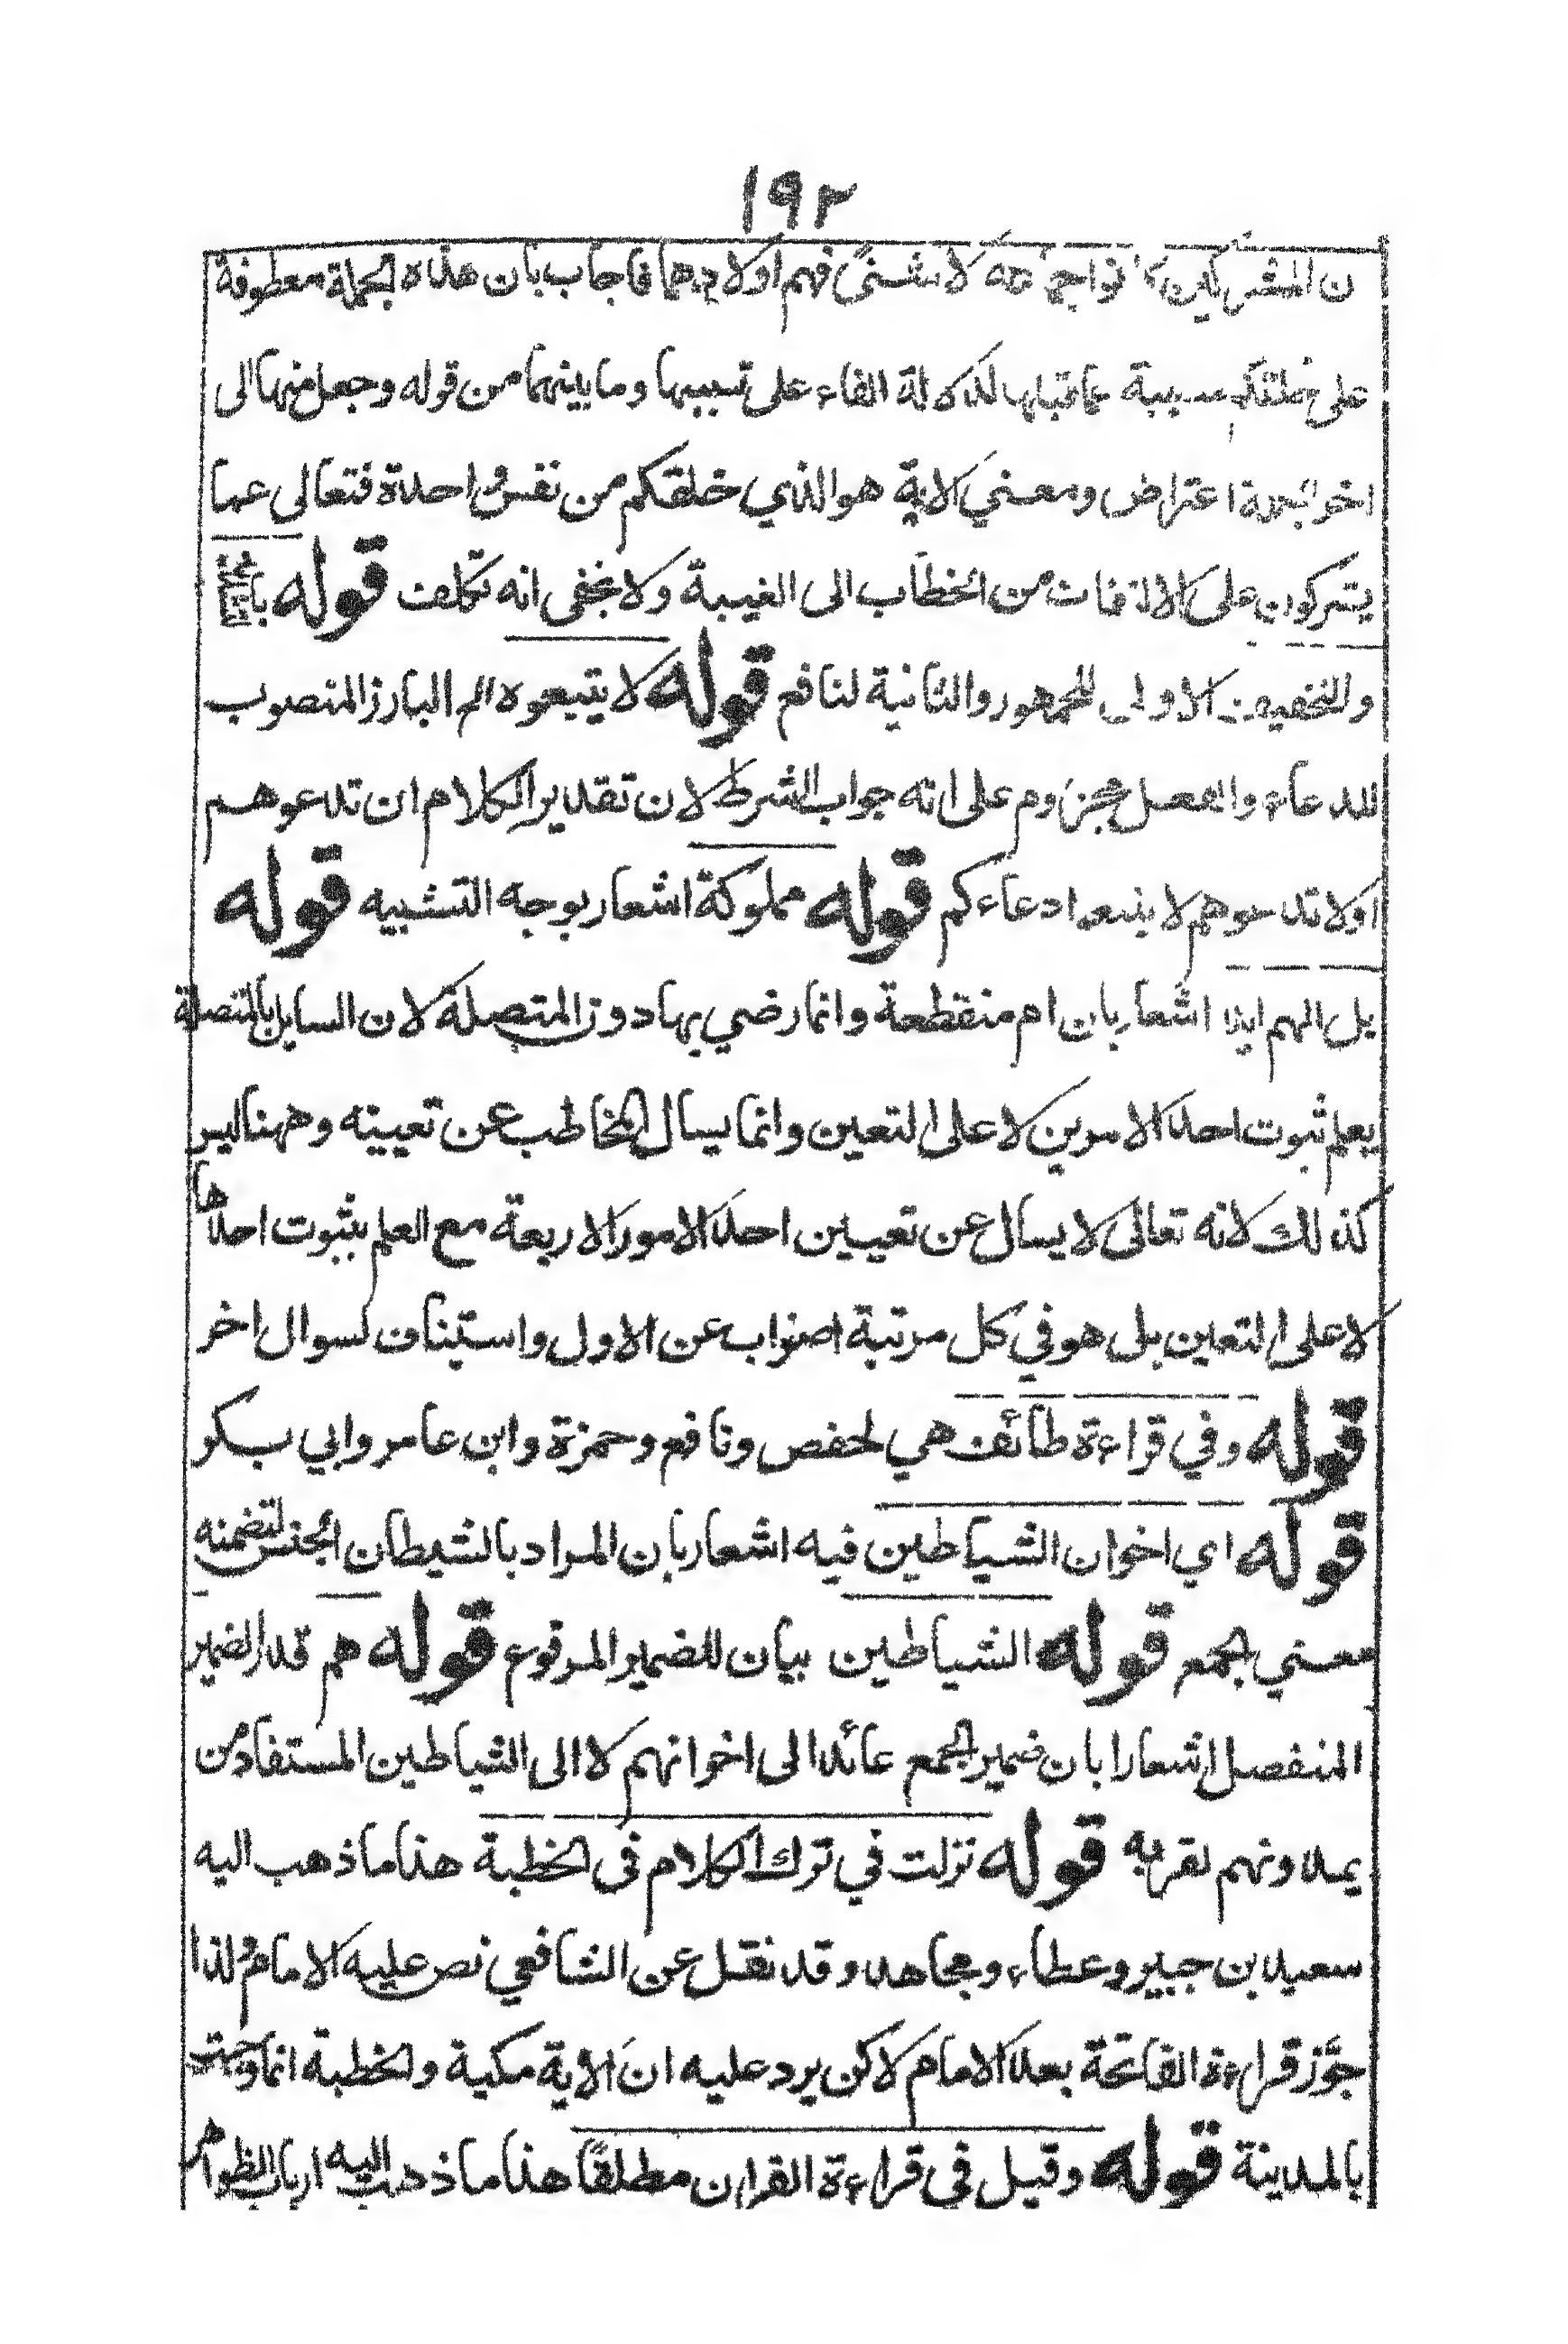 ١٩٢
ن المشركين كانوا جمـ لا سفسنى فهم اولادهما فاجاب بان هذه الجملة معطوفة
على خلقكم مسببة عما قبلها لدلالة الفاء على تسببها وما بينهما من قوله وجعل منها الى
اخر الجملة اعتراض ومعني الاية هو الذي خلقكم من نفس واحدة فتعالى عما
يشركون على الالتفات من الخطاب الى الغيبة ولا يخفى انه تكلف قوله
والتخفيف الاولى للجمهور والثانية لنافع قوله لا يتبعوه الم البارز المنصوب
للدعاء والفعل مجزوم على انه جواب الشرط لان تقدير الكلام ان تدعوهم
اولا تدعوهم لا يتبعوا دعاءكم قوله مملوكة اشعار بوجه التشبيه قوله
بل الهم ايد اشعار بان ام منقطعة وانما رضي بها دون المتصلة لان السايل بالمتصلة
يعلم ثبوت احد الامرين لا على التعين وانما يسال المخاطب عن تعيينه وههنا ليس
كذلك لانه تعالى لا يسال عن تعيين احد الامور الاربعة مع العلم بثبوت احدها
لا على التعين بل هو في كل مرتبة اضراب عن الاول واستيناف لسوال اخر
قوله وفي قراءة طائف هي لحفص ونافع وحمزة وابن عامر وابي بكر
قوله اي اخوان الشياطين فيه اشعار بان المراد بالشيطان الجنس لتضمنه
معني الجمع قوله الشياطين بيان للضمير المرفوع قوله هم قدر الضمير
المنفصل اشعارا بان ضمير الجمع عائد الى اخوانهم لا الى الشياطين المستفاد من
يمدونهم لقربه قوله نزلت في ترك الكلام في الخطبة هذا ما ذهب اليه
سعيد بن جبير وعطاء ومجاهد وقد نقل عن الشافعي نص عليه الامام ولذا
جوَّز قراءة الفاتحة بعد الامام لاكن يرد عليه ان الاية مكية والخطبة انما وجبت
بالمدينة قوله وقيل في قراءة القران مطلقًا هذا ما ذهب اليه ارباب الظواهر